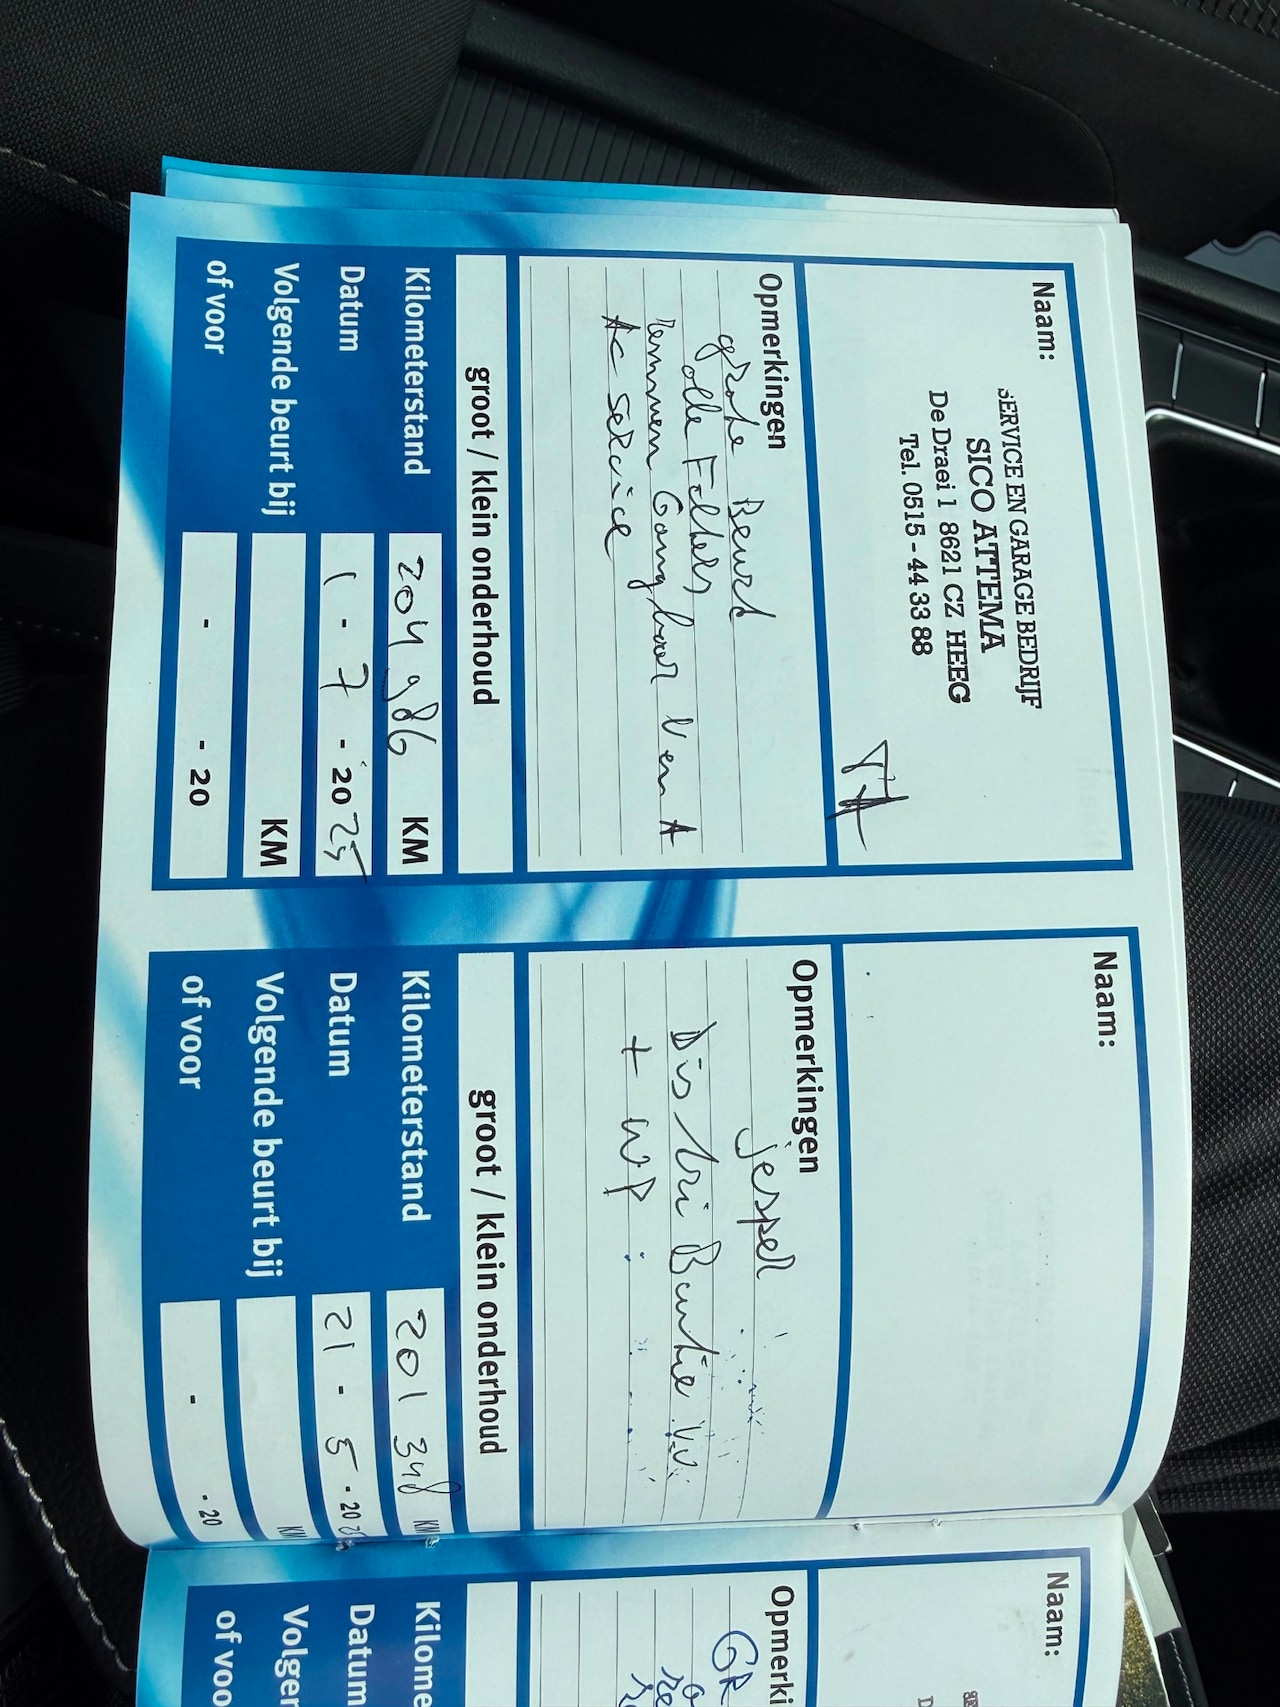 Naam:
SERVICE EN GARAGE BEDRIJF
SICO ATTEMA
De Draei 1 8621 CZ HEEG
Tel. 0515 - 44 33 88
Opmerkingen
grote Beurt
olle Filters
Remmen Gangbaar V en A
Ac service
groot / klein onderhoud
Kilometerstand 204 986 KM
Datum 1 - 7 - 2025
Volgende beurt bij KM
of voor - - 20
Naam:
Opmerkingen
jesper
Distri Buutie V.V.
+ WP
groot / klein onderhoud
Kilometerstand 201 348 KM
Datum 21 - 5 - 20
Volgende beurt bij KM
of voor - - 20
Naam:
Opmerki
GR
Kilome
Datum
Volger
of voo